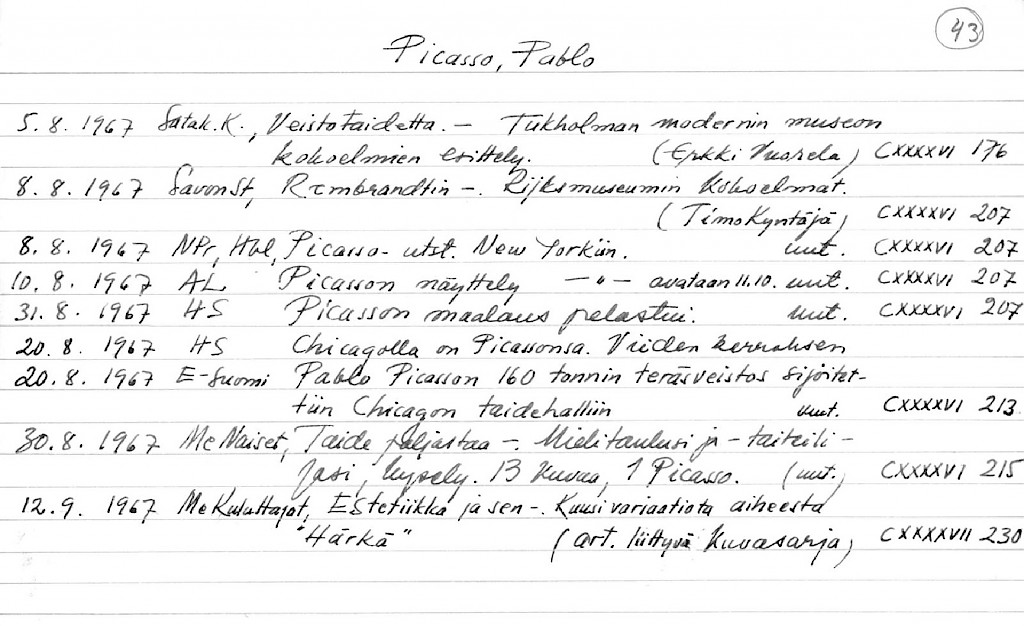 43
Picasso, Pablo
5.8. 1967 Satak.K., Veistotaidetta. – Tukholman modernin museon
kokoelmien esittely. (Erkki Vuorela) CXXXXVI 176
8.8. 1967 SavonSt, Rembrandtin –. Rijksmuseumin kokoelmat.
(Timo Kyntäjä) CXXXXVI 207
8.8. 1967 NPr, Hbl, Picasso-utst. New Yorkiin. uut. CXXXXVI 207
10.8. 1967 AL Picasson näyttely –"– avataan 11.10. uut. CXXXXVI 207
31.8. 1967 HS Picasson maalaus pelastui. uut. CXXXXVI 207
20.8. 1967 HS Chicagolla on Picassonsa. Viiden kerroksen
20.8. 1967 E-Suomi Pablo Picasson 160 tonnin teräsveistos sijoitet-
tiin Chicagon taidehalliin uut. CXXXXVI 213
30.8. 1967 Me Naiset, Taide paljastaa –. Mielitaulusi ja -taiteili-
jasi, kysely. 13 kuvaa, 1 Picasso. (uut.) CXXXXVI 215
12.9. 1967 Me Kuluttajat, Estetiikka ja sen –. Kuusi variaatiota aiheesta
"Härkä" (art. liittyvä kuvasarja) CXXXXVII 230